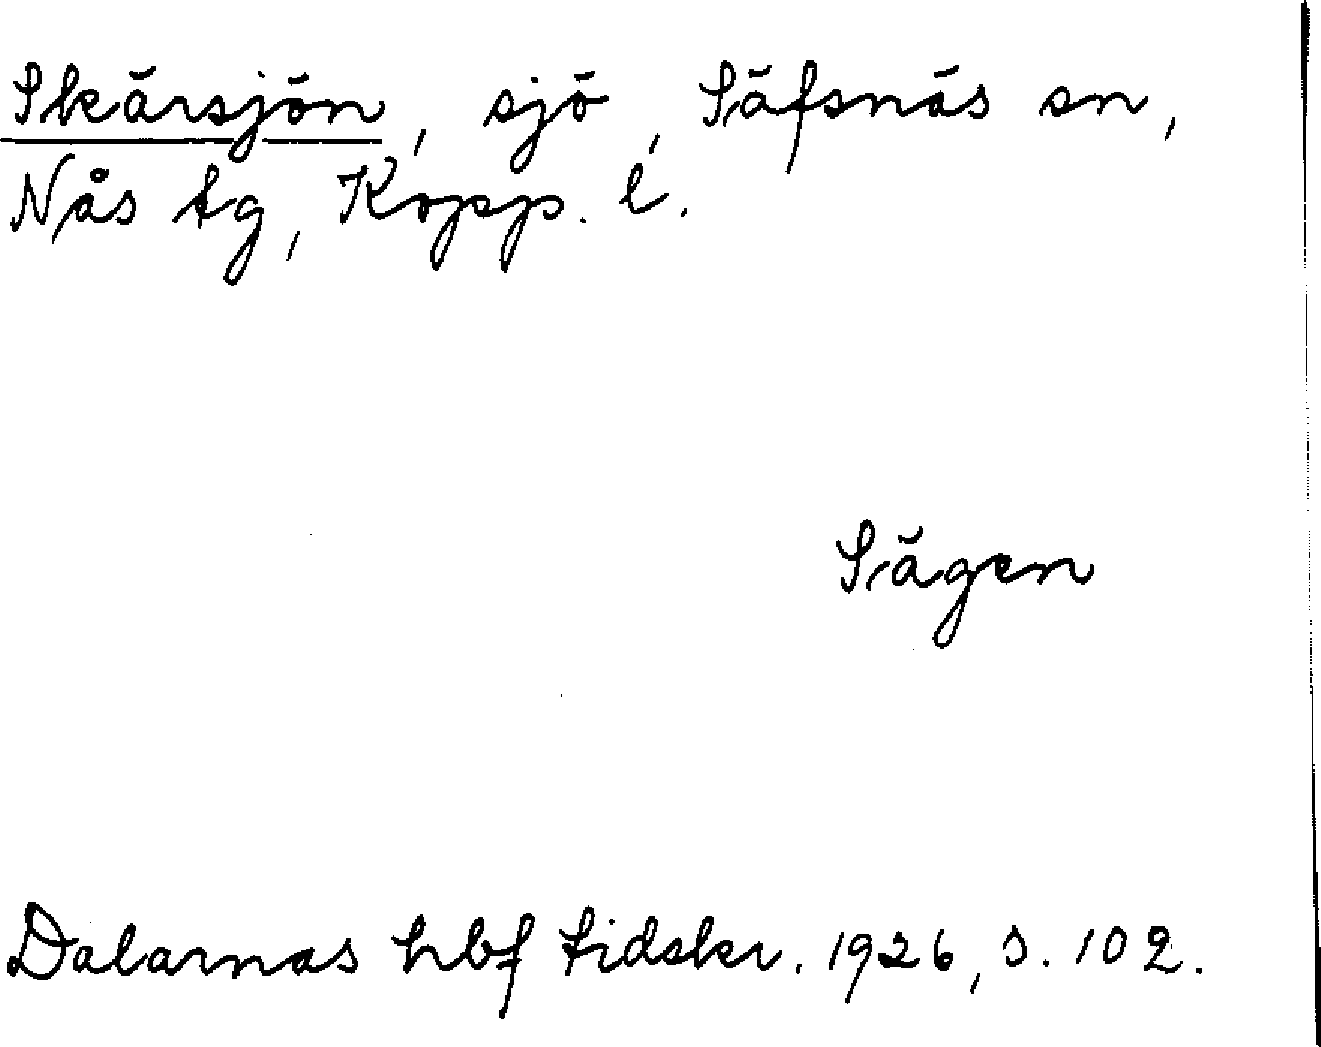 Skärsjön, sjö, Säfsnäs sn,
Nås tg, Kopp. l.
Sägen
Dalarnas hbf tidskr. 1926, s. 102.